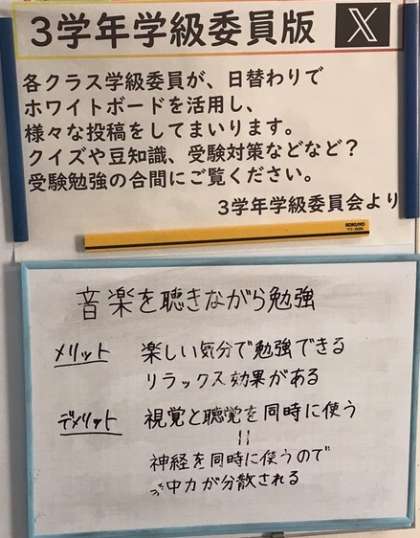 3学年学級委員版 X
各クラス学級委員が、日替わりで
ホワイトボードを活用し、
様々な投稿をしてまいります。
クイズや豆知識、受験対策などなど?
受験勉強の合間にご覧ください。
3学年学級委員会より
KOKUYO
音楽を聴きながら勉強
メリット 楽しい気分で勉強できる
リラックス効果がある
デメリット 視覚と聴覚を同時に使う
=
神経を同時に使うので
中力が分散される